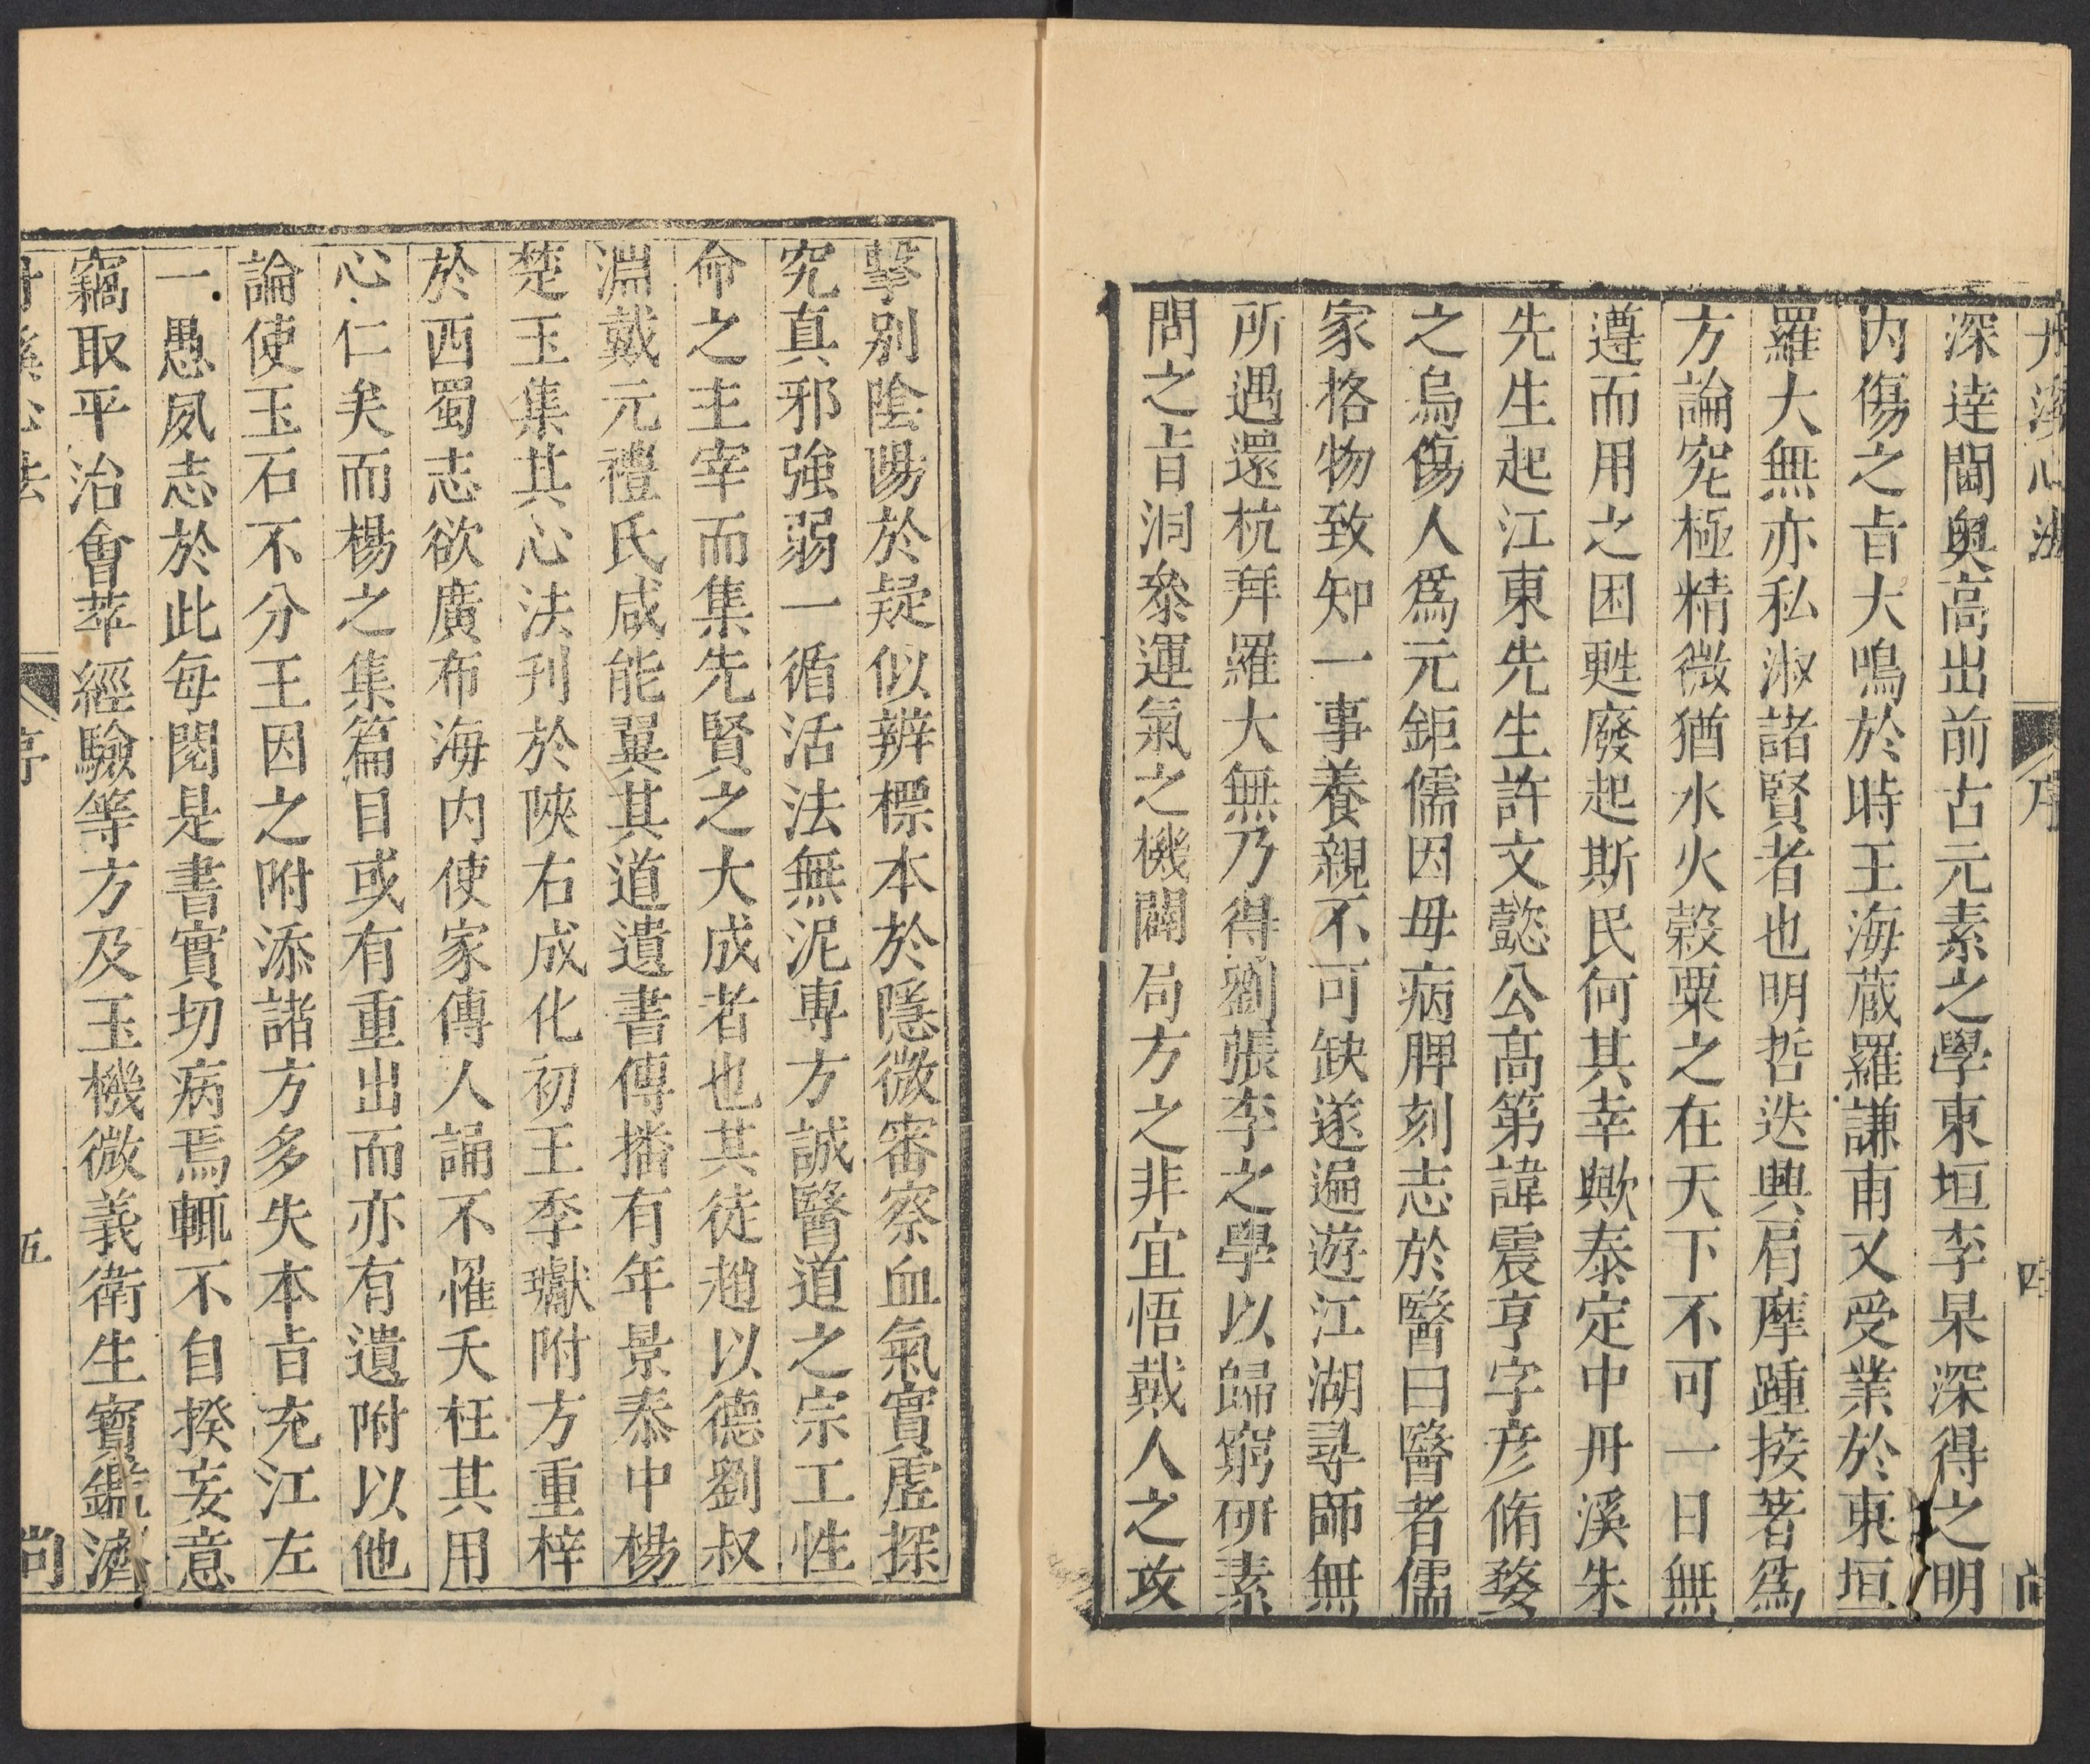 丹溪心法 序 四 尚
深逹閫奥高出前古元素之學東垣李杲深得之明
内傷之㫖大鳴於時王海蔵羅謙甫又受業於東垣
羅大無亦私淑諸賢者也明哲迭興肩摩踵接著爲
方論究極精微猶水火榖粟之在天下不可一日無
遵而用之困甦廢起斯民何其幸歟泰定中丹溪朱
先生起江東先生許文懿公髙第諱震亨字彦脩婺
之烏傷人爲元鉅儒因母病脾刻志於醫曰醫者儒
家格物致知一事養親不可缺遂遍遊江湖尋師無
所遇還杭拜羅大無乃得劉張李之學以歸窮研素
問之㫖洞叅運氣之機闢局方之非宜悟戴人之攻
擊别陰陽於疑似辨標本於隱微審察血氣實虛探
究真邪強弱一循活法無泥專方誠醫道之宗工性
命之主宰而集先賢之大成者也其徒趙以德劉叔
淵戴元禮氏咸能翼其道遺書傳播有年景泰中楊
楚玉集其心法刊於陜右成化初王季瓛附方重梓
於西蜀志欲廣布海内使家傳人誦不罹夭枉其用
心仁矣而楊之集篇目或有重出而亦有遺附以他
論使玉石不分王因之附添諸方多失本㫖充江左
一愚夙志於此每閱是書實切病焉輒不自揆妄意
竊取平治會萃經驗等方及玉機微義衛生寳鑑濟
丹溪心法 序 五 尚